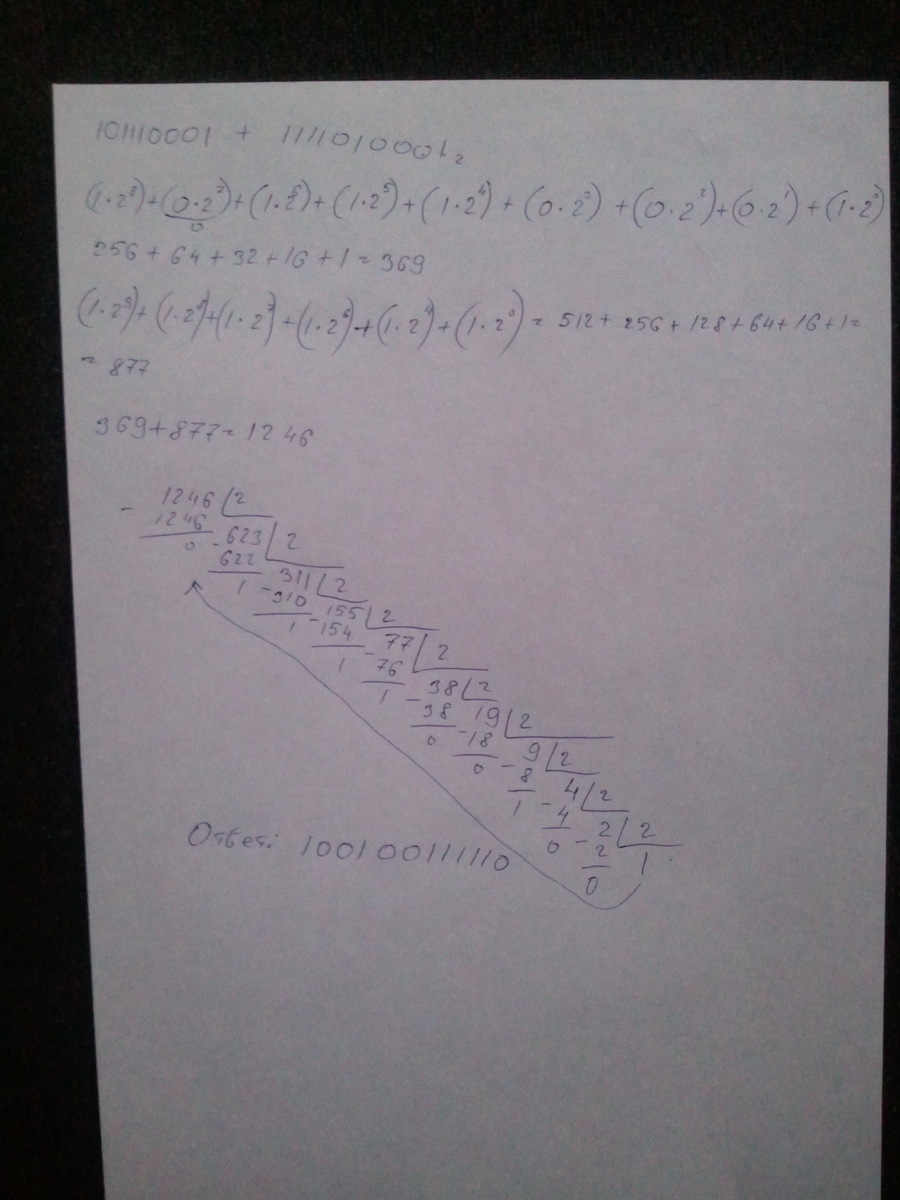 101110001 + 1111010001₂
(1·2⁸)+(0·2⁷)+(1·2⁶)+(1·2⁵)+(1·2⁴)+(0·2³)+(0·2²)+(0·2¹)+(1·2⁰)
0
256+64+32+16+1=369
(1·2⁹)+(1·2⁸)+(1·2⁷)+(1·2⁶)+(1·2⁴)+(1·2⁰)=512+256+128+64+16+1=
=877
369+877=1246
- 1246 | 2
1246
0 - 623 | 2
622
1 - 311 | 2
310
1 - 155 | 2
154
1 - 77 | 2
76
1 - 38 | 2
38
0 - 19 | 2
18
0 - 9 | 2
8
1 - 4 | 2
4
0 - 2 | 2
2
0
1
Ответ: 10010011110